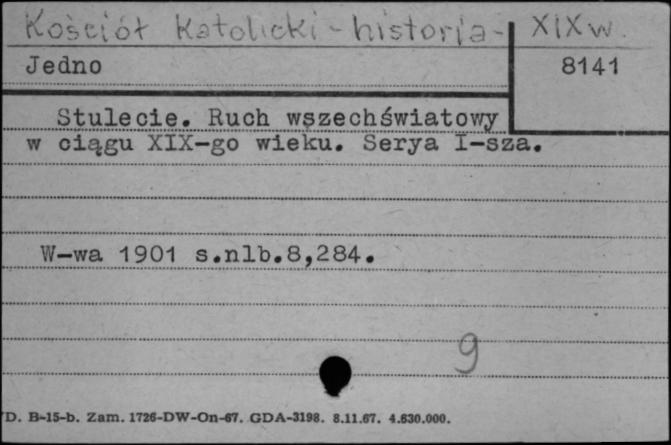 Kościół Katolicki - historia - XIX w.
Jedno 8141
Stulecie. Ruch wszechświatowy
w ciągu XIX-go wieku. Serya I-sza.
W-wa 1901 s.nlb.8,284.
9
D. B-15-b. Zam. 1726-DW-On-67. GDA-3198. 8.11.67. 4.630.000.